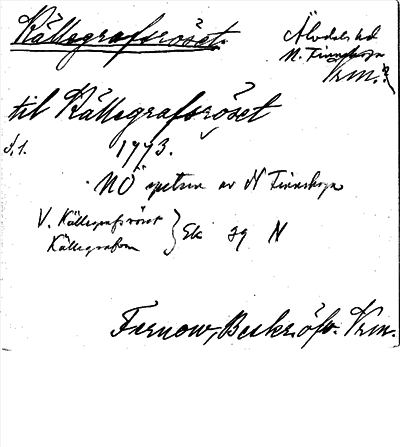 Källegrafsröset.
Älvdals hd
N. Finnskoga
Vrm.
til Källegrafsröset
s. 1. 1773.
NÖ spetsen av N Finnskoga
V. Källegrafsröset
Källegrafven } Ek 39 N
Fernow, Beskr. öfv. Vrm.